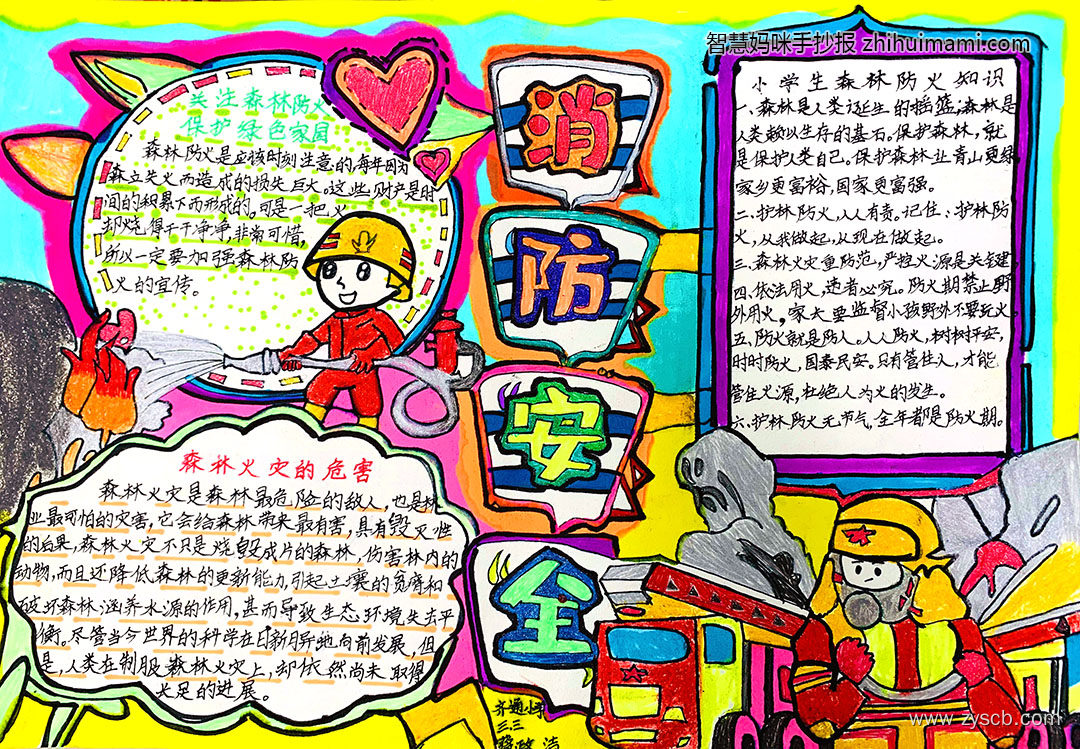 智慧妈咪手抄报 zhihuimami.com
关注森林防火
保护绿色家园
森林防火是应该时刻注意的,每年因为
森立失火而造成的损失巨大。这些财产是时
间的积累下而形成的。可是一把火
却烧得干干净净,非常可惜,
所以一定要加强森林防
火的宣传。
消
防
安
全
小学生森林防火知识
一、森林是人类诞生的摇篮;森林是
人类赖以生存的基石。保护森林,就
是保护人类自己。保护森林业青山更绿
家乡更富裕,国家更富强。
二、护林防火,人人有责。记住:护林防
火,从我做起,从现在做起。
三、森林火灾重防范,严控火源是关键
四、依法用火,违者必究。防火期禁止野
外用火。家长要监督小孩野外不要玩火。
五、防火就是防人。人人防火,树树平安,
时时防火,国泰民安。只有管住人,才能
管住火源,杜绝人为火的发生。
六、护林防火无节气,全年都是防火期。
森林火灾的危害
森林火灾是森林最危险的敌人,也是林
业最可怕的灾害,它会给森林带来最有害,具有毁灭性
的后果,森林火灾不只是烧毁成片的森林,伤害林内的
动物,而且还降低森林的更新能力,引起土壤的贫瘠和
破坏森林涵养水源的作用,甚而导致生态环境失去平
衡。尽管当今世界的科学在日新月异地向前发展,但
是,人类在制服森林火灾上,却依然尚未取得
长足的进展。
三三
www.zyscb.com